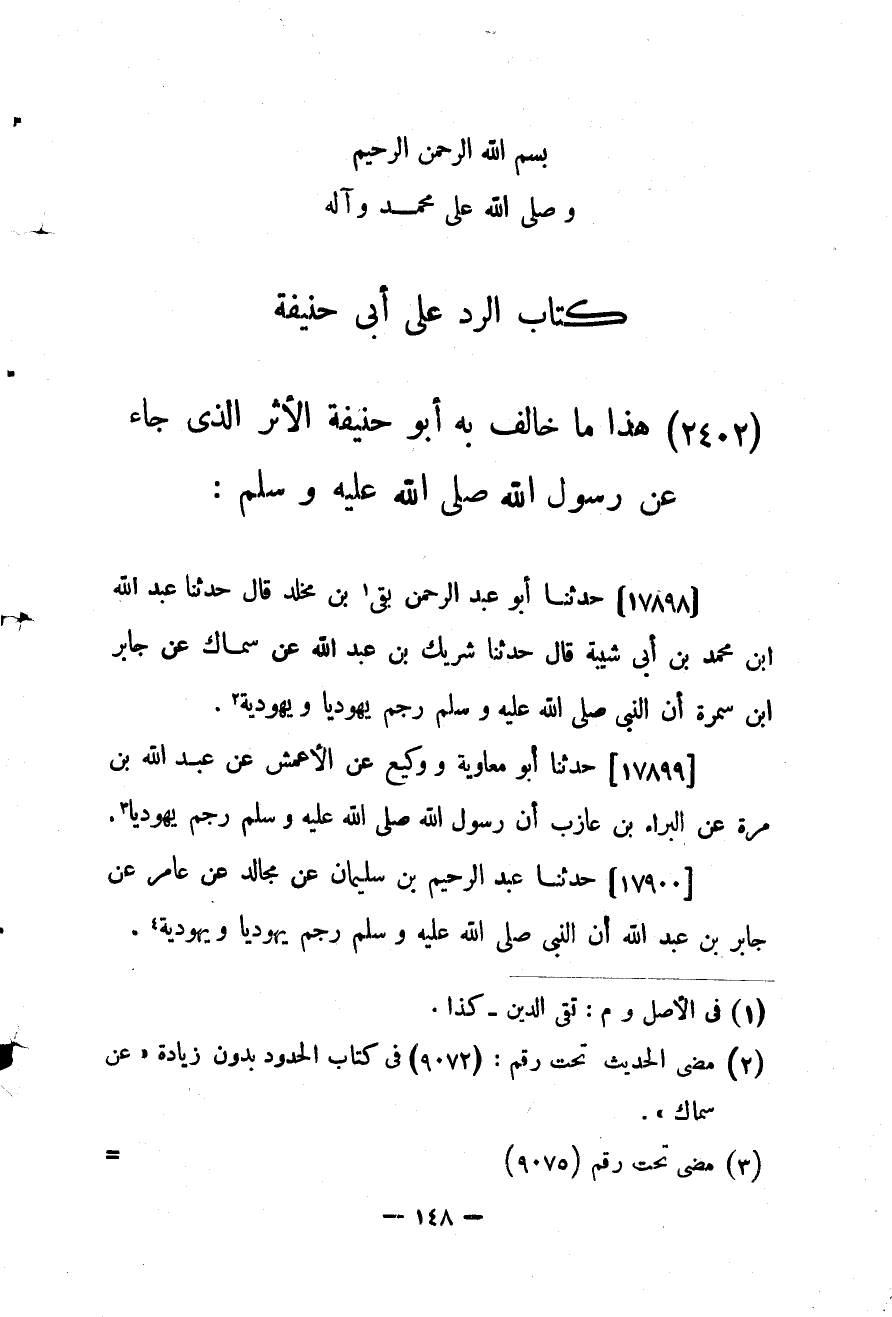 بسم الله الرحمن الرحيم
و صلى الله على محمـــد وآله
كتاب الرد على أبى حنيفة
(٢٤٠٢) هذا ما خالف به أبو حنيفة الأثر الذى جاء
عن رسول الله صلى الله عليه و سلم :
[١٧٨٩٨] حدثنـــا أبو عبد الرحمن بقى١ بن مخلد قال حدثنا عبد الله
ابن محمد بن أبى شيبة قال حدثنا شريك بن عبد الله عن سمــاك عن جابر
ابن سمرة أن النبى صلى الله عليه و سلم رجم يهوديا و يهودية٢ .
[١٧٨٩٩] حدثنا أبو معاوية و وكيع عن الأعمش عن عبـد الله بن
مرة عن البراء بن عازب أن رسول الله صلى الله عليه و سلم رجم يهوديا٣.
[١٧٩٠٠] حدثنـــا عبد الرحيم بن سليمان عن مجالد عن عامر عن
جابر بن عبد الله أن النبى صلى الله عليه و سلم رجم يهوديا و يهودية٤ .
(١) فى الأصل و م : تقى الدين ـ كذا .
(٢) مضى الحديث تحت رقم : (٩٠٧٢) فى كتاب الحدود بدون زيادة « عن
سماك » .
(٣) مضى تحت رقم (٩٠٧٥) =
— ١٤٨ —